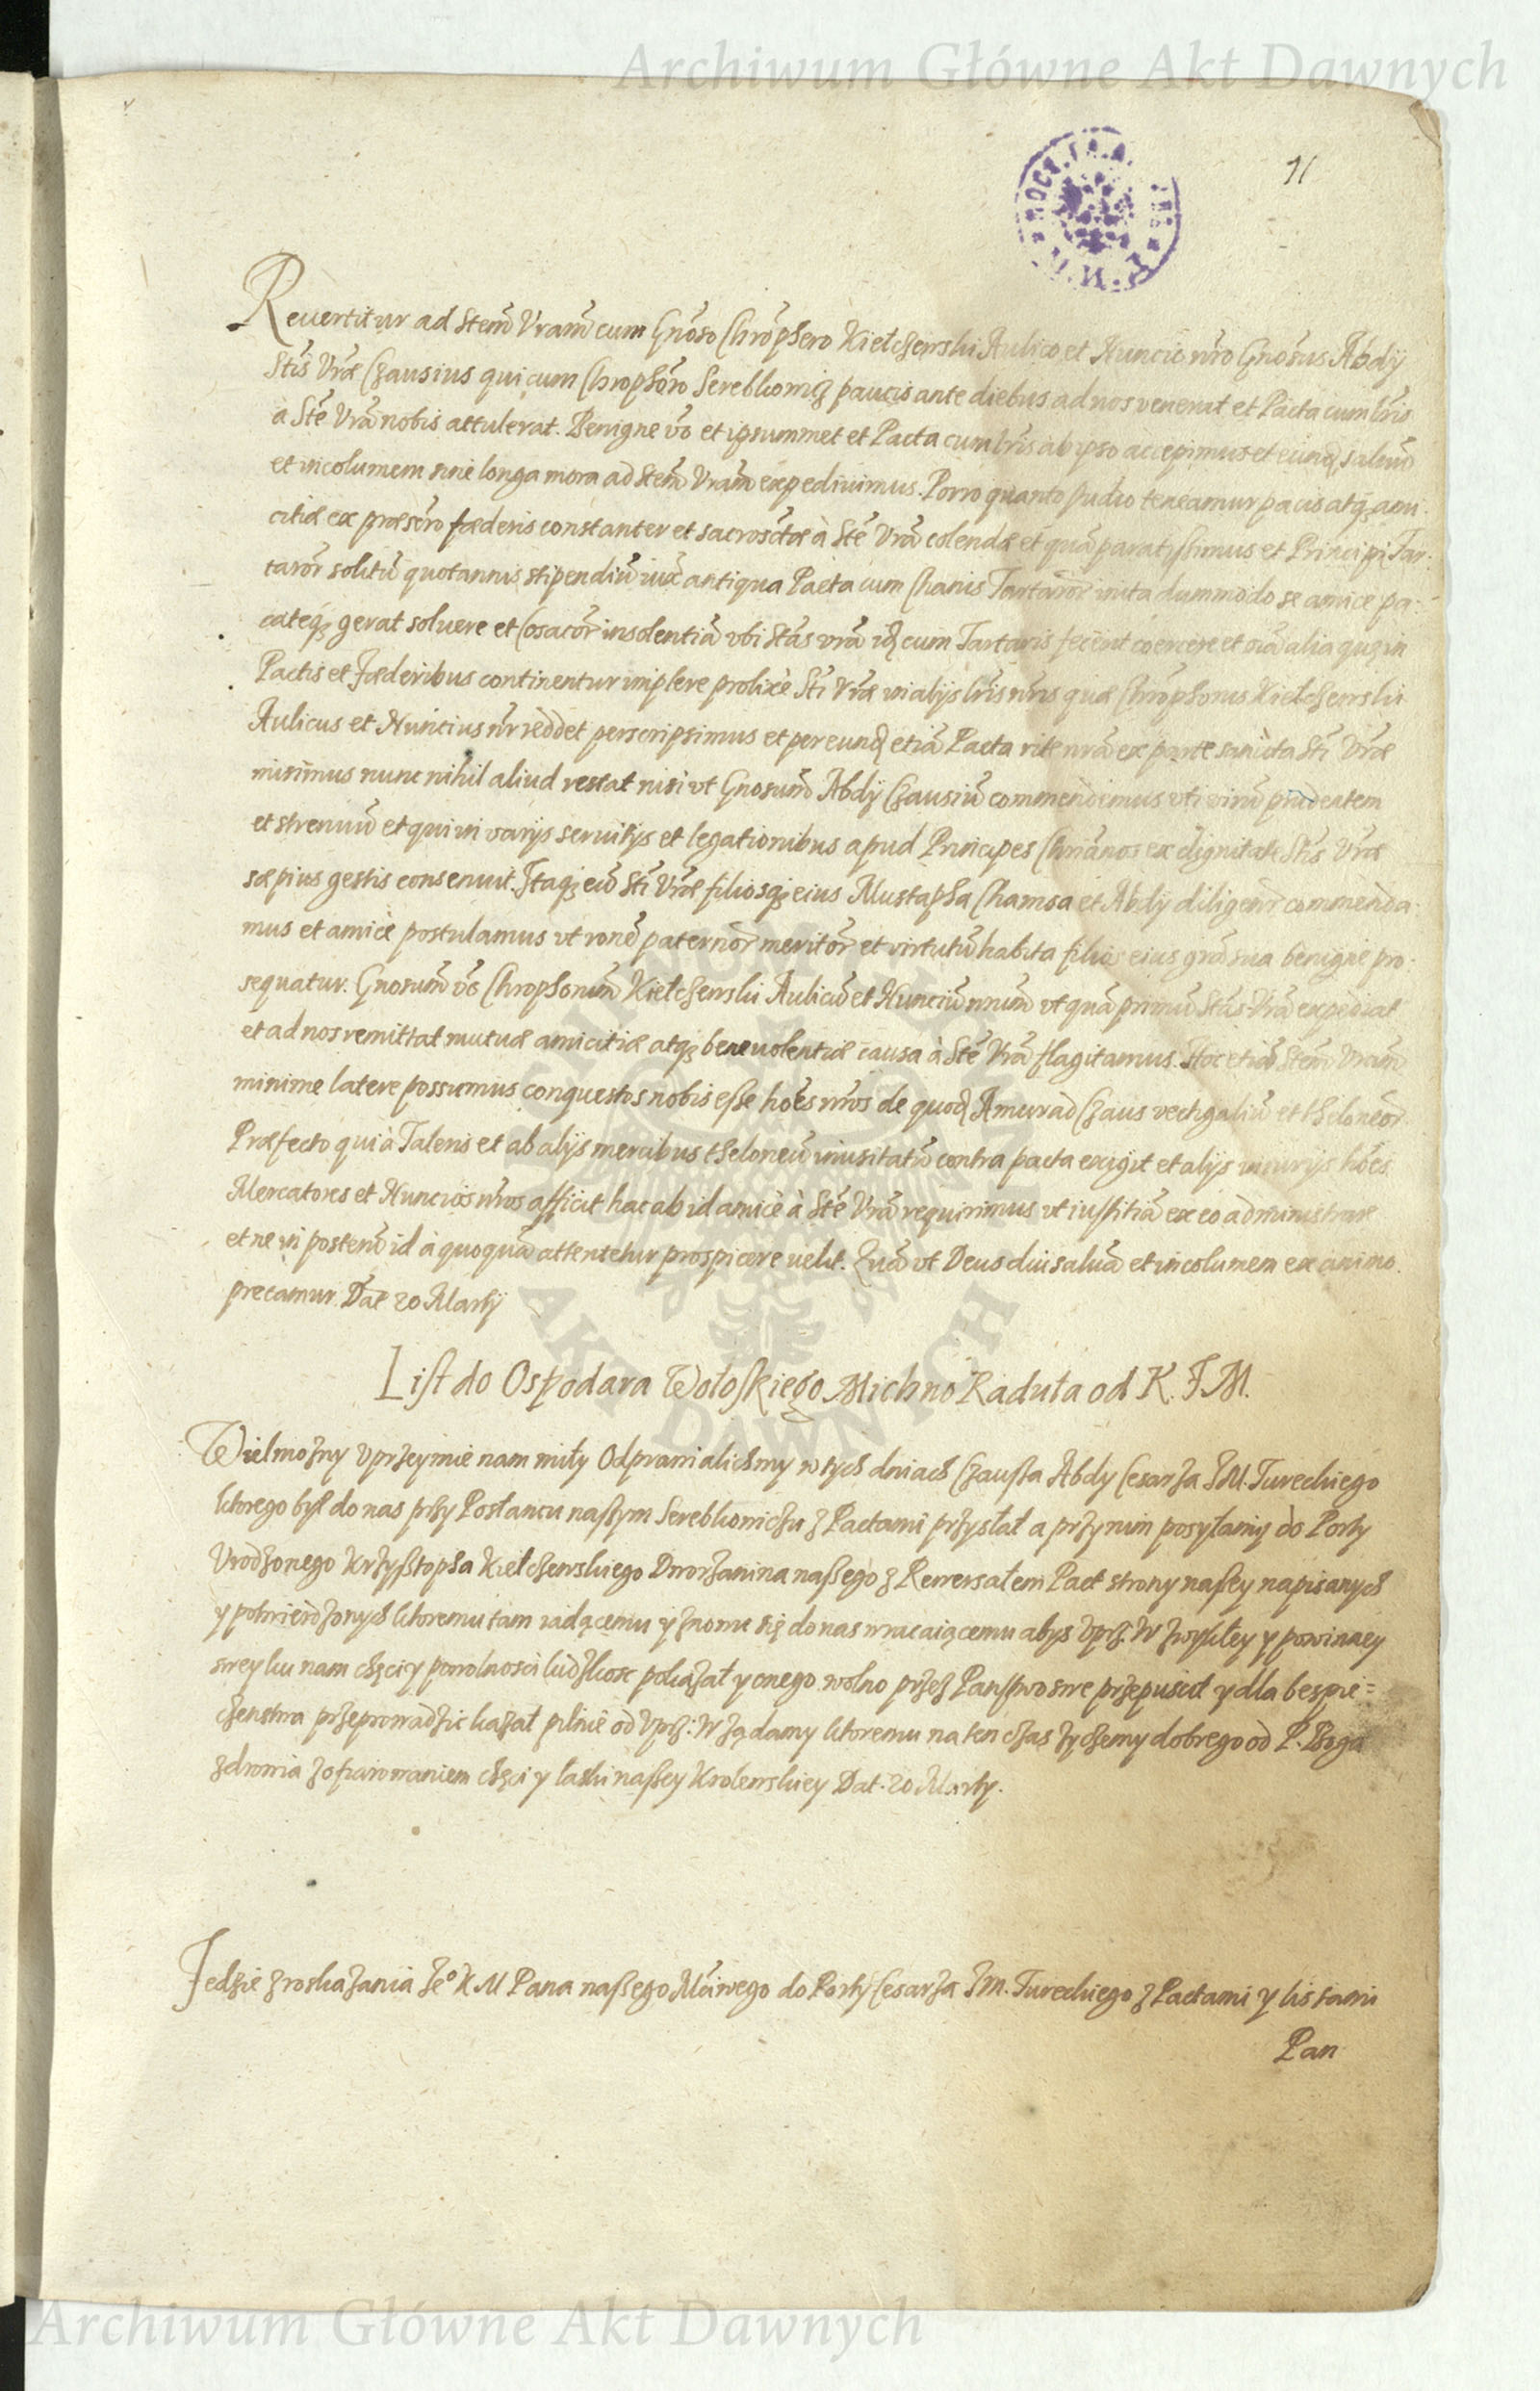 Archiwum Główne Akt Dawnych
11
Reuertitur ad Stem̃ Vram̃ cum Gnõso Chrõphero Kietczewski Aulico et Nuncio nr̃o Gnosus Abdÿ
Stis̃ Vræ̃ Czausius qui cum Chrophõro Serebkowicz paucis ante diebus ad nos venerat et Pacta cum lr̃is
à Stẽ Vrã nobis attulerat. Benigne võ et ipsummet et Pacta cum lr̃is ab ipso accepimus et eunq saluũ
et incolumem sine longa mora ad Stem̃ Vram̃ expediuimus. Porro quanto studio teneamur pacis atq ami:
citiæ ex præscr̃o fœderis constanter et sacrosctæ à Stẽ Vrã colendæ et quã paratissimus et Principi Tar:
tarõr solitũ quotannis stipendiũ iux̃ antiqua Pacta cum Chanis Tartarõr inita dummodo se amice pa:
cateq gerat soluere et Cosacõr insolentiã vbi Stãs vrã idq cum Tartaris fecerit coercere et oĩa alia quæ in
Pactis et Fœderibus continentur implere prolixè Sti Vræ̃ in alÿs lr̃is nr̃is quæ Chrõphorus Kietczewski
Aulicus et Nuncius nr̃ reddet perscripsimus et per eunq etiã Pacta rite nrã ex parte sancita Sti Vræ̃
misimus nunc nihil aliud restat nisi vt Gnosum̃ Abdÿ Czausiũ commendemus vti virũ prudentem
et strenuũ et qui in varÿs seruitÿs et legationibus apud Principes Chriãnos ex dignitate Stis̃ Vræ̃
sæpius gestis consenuit. Itaq eũ Sti Vræ̃ filiosq eius Mustapha Chamsa et Abdÿ diligenr̃ commenda:
mus et amicè postulamus vt ronẽ paternõr meritõr et virtutũ habita filios eius grã̃ sua benigne pro:
sequatur. Gnosum̃ võ Chrophorum̃ Kietczewski Aulicũ et Nunciũ nrum̃ vt quã primũ Stãs Vrã expediat
et ad nos remittat mutuæ amicitiæ atq beneuolentiæ causa à Stẽ Vrã flagitamus. Hoc etiã Stem̃ Vram̃
minime latere possumus conquestos nobis esse hoẽs nr̃os de quoq Amurad Czaus vectigaliũ et theloneõr
Præfecto qui à Taleris et ab alÿs mercibus theloneũ inusitatũ contra pacta exigit et alÿs iniurÿs hoẽs
Mercatores et Nuncios nr̃os afficit hac ab id amicè à Stẽ Vrã requirimus vt iustitiã ex eo administrare
et ne in posterũ id à quoquã attentetur prospicere uelit. Quã vt Deus diu saluã et incolumem ex animo
precamur. Dat̃ 20 Martÿ
List do Ospodara Wołoskiego Michno Raduła od K. J. M.
Wielmozny vprzeymie nam miły Odprawialichmy w tych dniach Czausza Abdy Cesarza JM. Tureckiego
ktorego był do nas przy Posłancu naszym Serebkowiczu z Pactami przysłał a przy nim posyłamy do Porty
Vrodzonego Krzysztopha Kietczewskiego Dworzanina naszego z Rewersałem Pact strony naszey napisanych
y potwierdzonych ktoremu tam iadącemu y znowu się do nas wracaiącemu abys vprz. W zwykłey y powinney
swey ku nam chęci y powolnosci ludzkosc pokazał y onego wolno przez Panstwo swe przepuscił y dla bespie=
czenstwa przeprowadzic kazał pilnie od vprz: W ządamy ktoremu na ten czas zyczemy dobrego od P. Boga
zdrowia z ofiarowaniem chęci y łaski naszey Krolewskiey Dat. 20 Marty.
Jedzie z roskazania Jeº K M Pana naszego Mciwego do Porty Cesarza JM. Tureckiego z Pactami y listami
Pan
Archiwum Główne Akt Dawnych